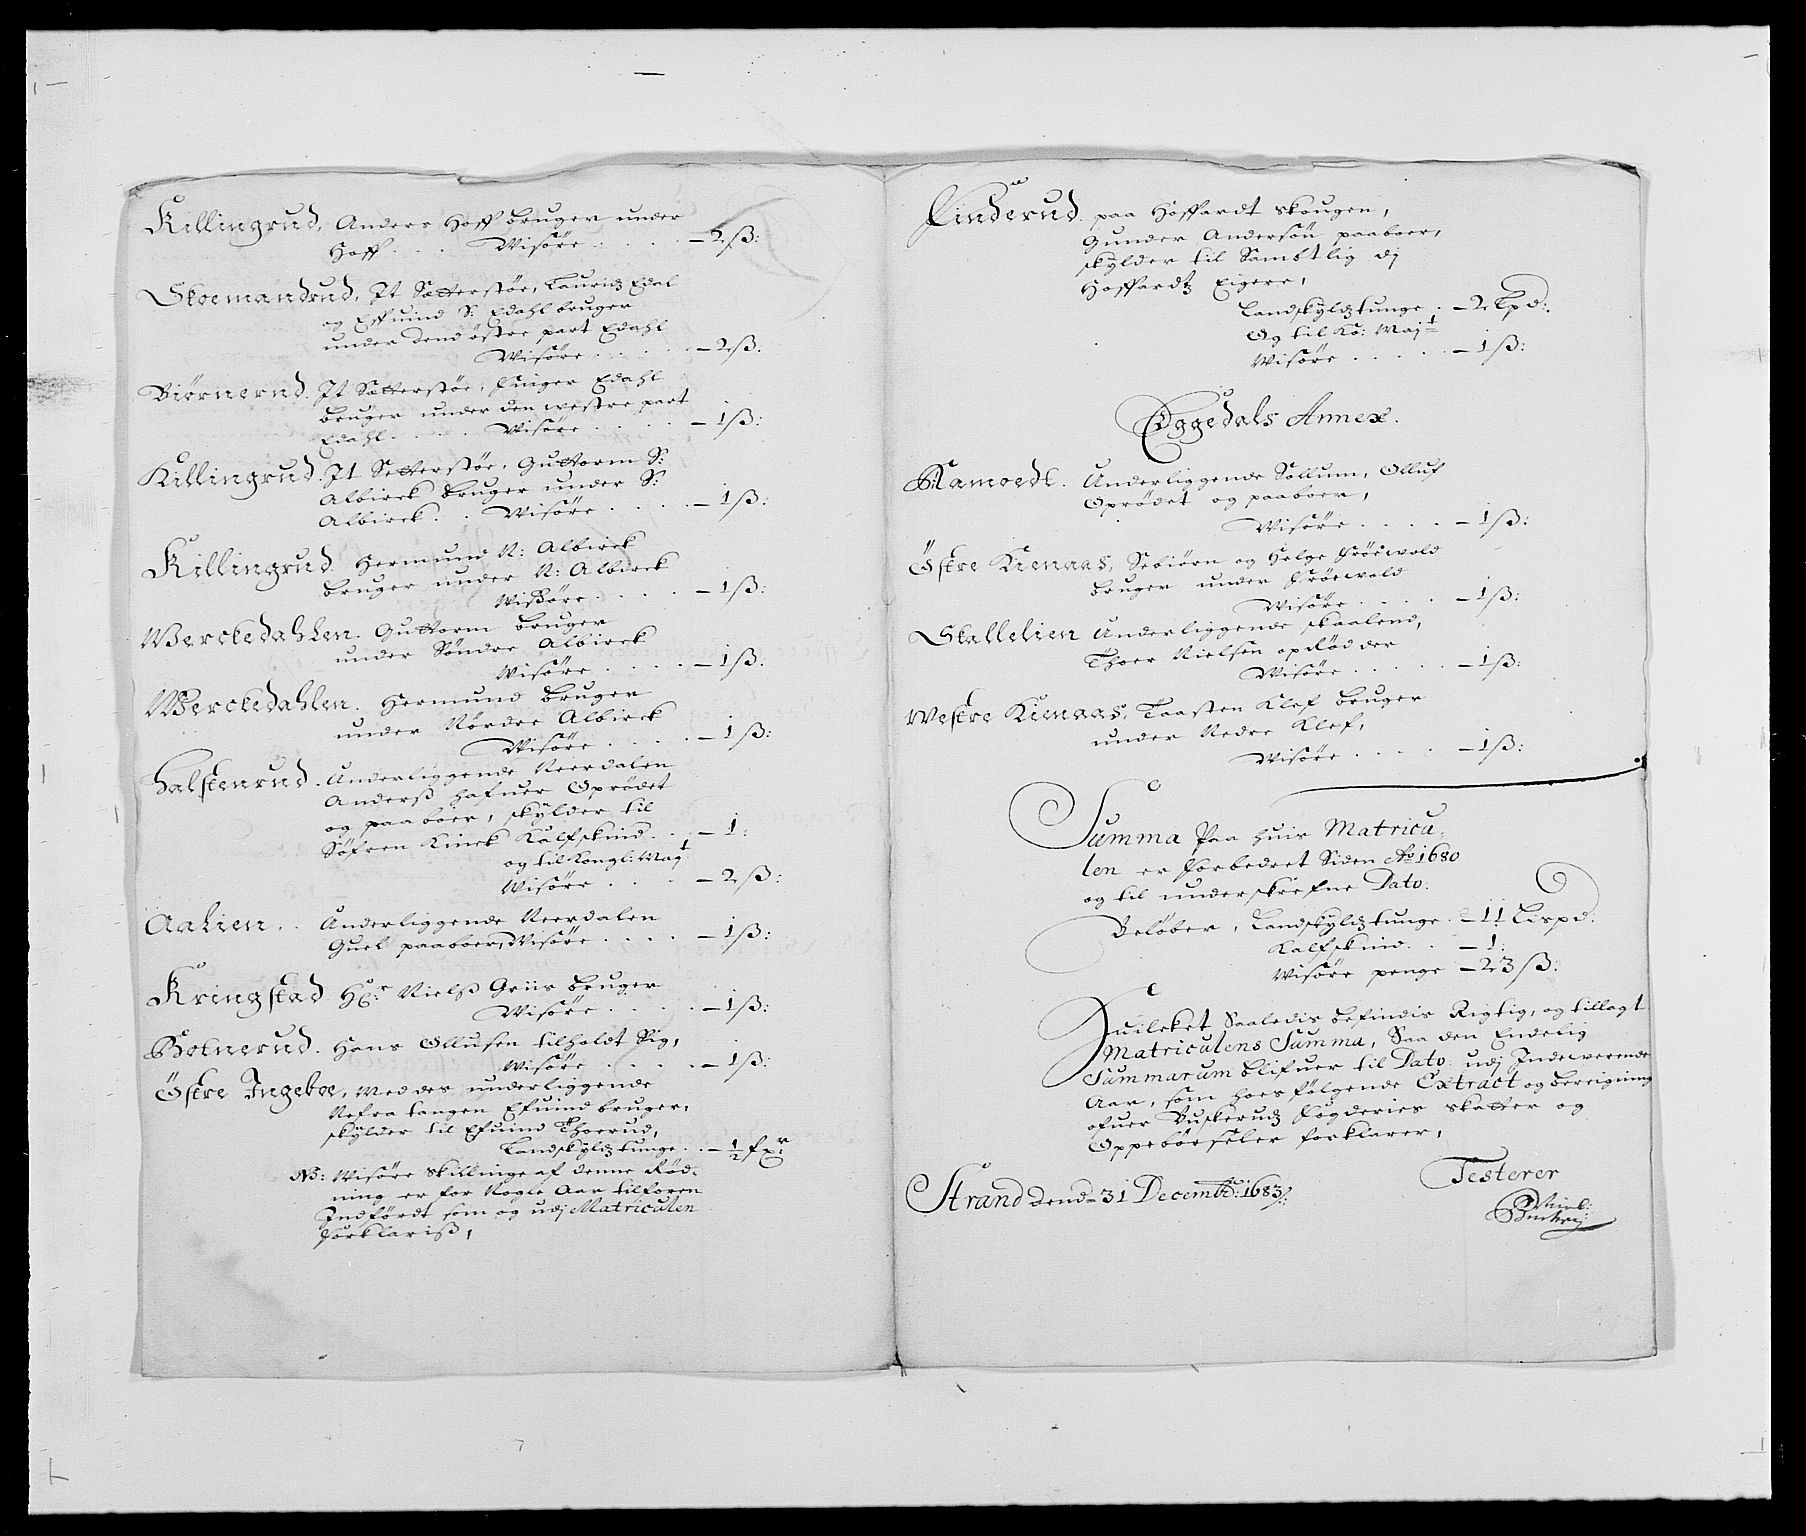 Killingrud. Anders Hoff bruger under
Hoff . . . Wisøre . . . . – 2 ß:
Skoemandrud. It Sætterstøe, Lauridz Edal
og Effuind S: Edahl bruger
under dend östre part Edahl
Wisøre . . . . – 2 ß:
Biørnerud. It Sætterstøe, Finger Edahl
bruger under den westre part
Edahl . . . . Wisøre . . . . – 1 ß:
Killingrud. It Setterstøe, Guttorm S:
Albirck bruger under S:
Albirck . . Wisøre . . . . – 1 ß:
Killingrud. Hermund N: Albirck
bruger under N: Albirck
Wisøre . . . . – 1 ß:
Werckedahlen. Guttorm bruger
under Søndre Albirck
Wisøre . . . . – 1 ß:
Werckedahlen. Hermund bruger
under Nørdre Albirck
Wisøre . . . . – 1 ß:
Halstenrud. Underliggende Neerdalen
Anderß hafuer Oprødet
og paaboer, skylder til
Søfren Kinck Kalfskind . . – 1:
og til Kongl: Mayt
Wisøre . . . . – 2 ß:
Aalien. . Underliggende Neerdalen
Guel paaboer, Wisøre . . . . – 1 ß:
Kringstad Hr: Nielß Griis bruger
Wisøre . . . . – 1 ß:
Bolnerud. Hans Ollusen tilholdt Sig,
Wisøre . . . . – 1 ß:
Østre Ingeboe, Med des underliggende
Nefratangen Efuind bruger,
skylder til Efuind Thoerud,
Landskyldz tunge . . – ½ fxr
NB: Wisøre skillinge af denne Rød-
ning er for Nogle Aar tilforen
Indførdt som og udj Matriculen
forklariß,
Finderud. paa Hoffardt skougen,
Gunder Andersøn paaboer,
skylder til Sambtlig dj
Hoffardtz Eigere,
Landskyldz tunge . – 2 Lpd:
Og til Ko: Mayt
Wisøre . . . . – 1 ß:
Eggedals Annex.
Kamoedt. Underliggende Sollum, Olluf
Oprødet og paaboer,
Wisøre . . . . – 1 ß:
Østre Kienaas, Sebiørn og Helge Frøewold
bruger under Frøewold
Wisøre . . . . – 1 ß:
Skallelien Underliggende Skaalend,
Thoer Nielsøn opRødder
Wisøre . . . . – 1 ß:
Westre Kienaas, Taasten Klef bruger
under Nedre Klef,
Wisøre . . . . – 1 ß:
Summa Paa huis Matricu-
len er forbedret Siden Ao 1680
og til underskrefne Dato.
Beløber, Landskyldz tunge . – 11 Lispd:
Kalfskind . . – 1:
Wisøre penge – 23 ß:
Huilcket Saaledis befindis Rigtig, og tillagt
Matriculens Summa, Saa den Endelig
Summarum blifuer til Dato udj Indewerende
Aar, som hoesfølgende Extract og bereigning
ofuer Buskerudz fogderies skatter og
Oppebørseler forklarer,
Strand dend 31 Decembr: 1683:
Testerer